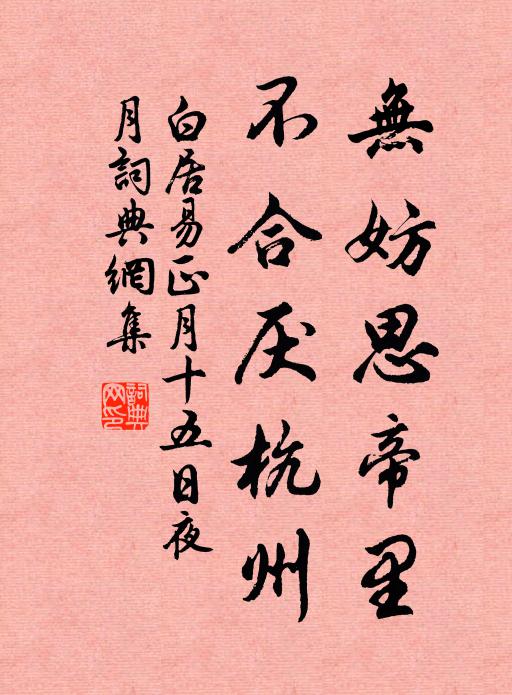 無妨思帝里
不合厌杭州
白居易正月十五日夜
月詞典網集
詞典網印